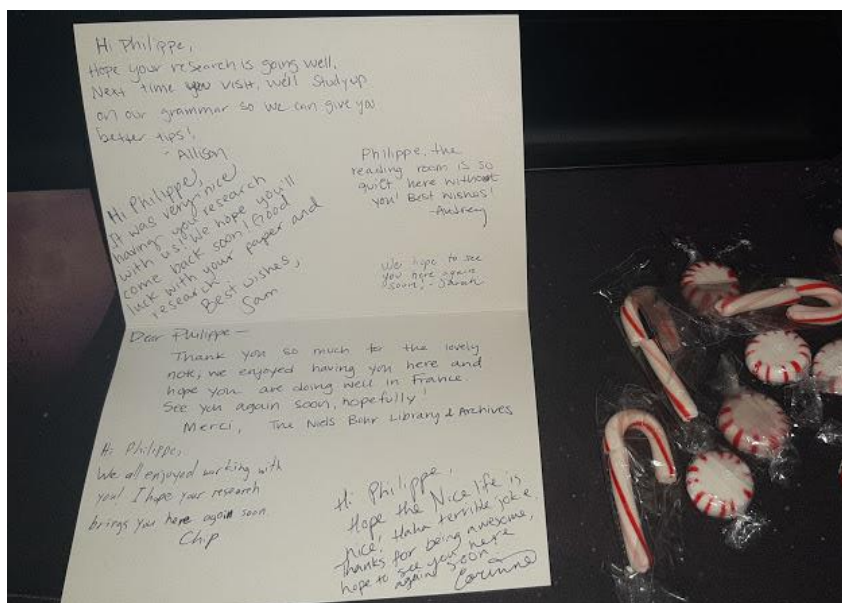 Hi Philippe,
Hope your research is going well.
Next time you visit, we'll study up
on our grammar so we can give you
better tips!
- Allison
Philippe, the
reading room is so
quiet here without
you! Best wishes!
-Audrey
Hi Philippe,
It was very nice
having you research
with us! We hope you'll
come back soon! Good
luck with your paper and
research.
Best wishes,
Sam
We hope to see
you here again
soon! - Sarah
Dear Philippe—
Thank you so much for the lovely
note, we enjoyed having you here and
hope you are doing well in France.
See you again soon, hopefully!
Merci, The Niels Bohr Library & Archives
Hi Philippe,
We all enjoyed working with
you! I hope your research
brings you here again soon.
Chip
Hi Philippe,
Hope the Nice life is
nice. Haha terrible joke.
Thanks for being awesome,
hope to see you here
again soon
Corinne